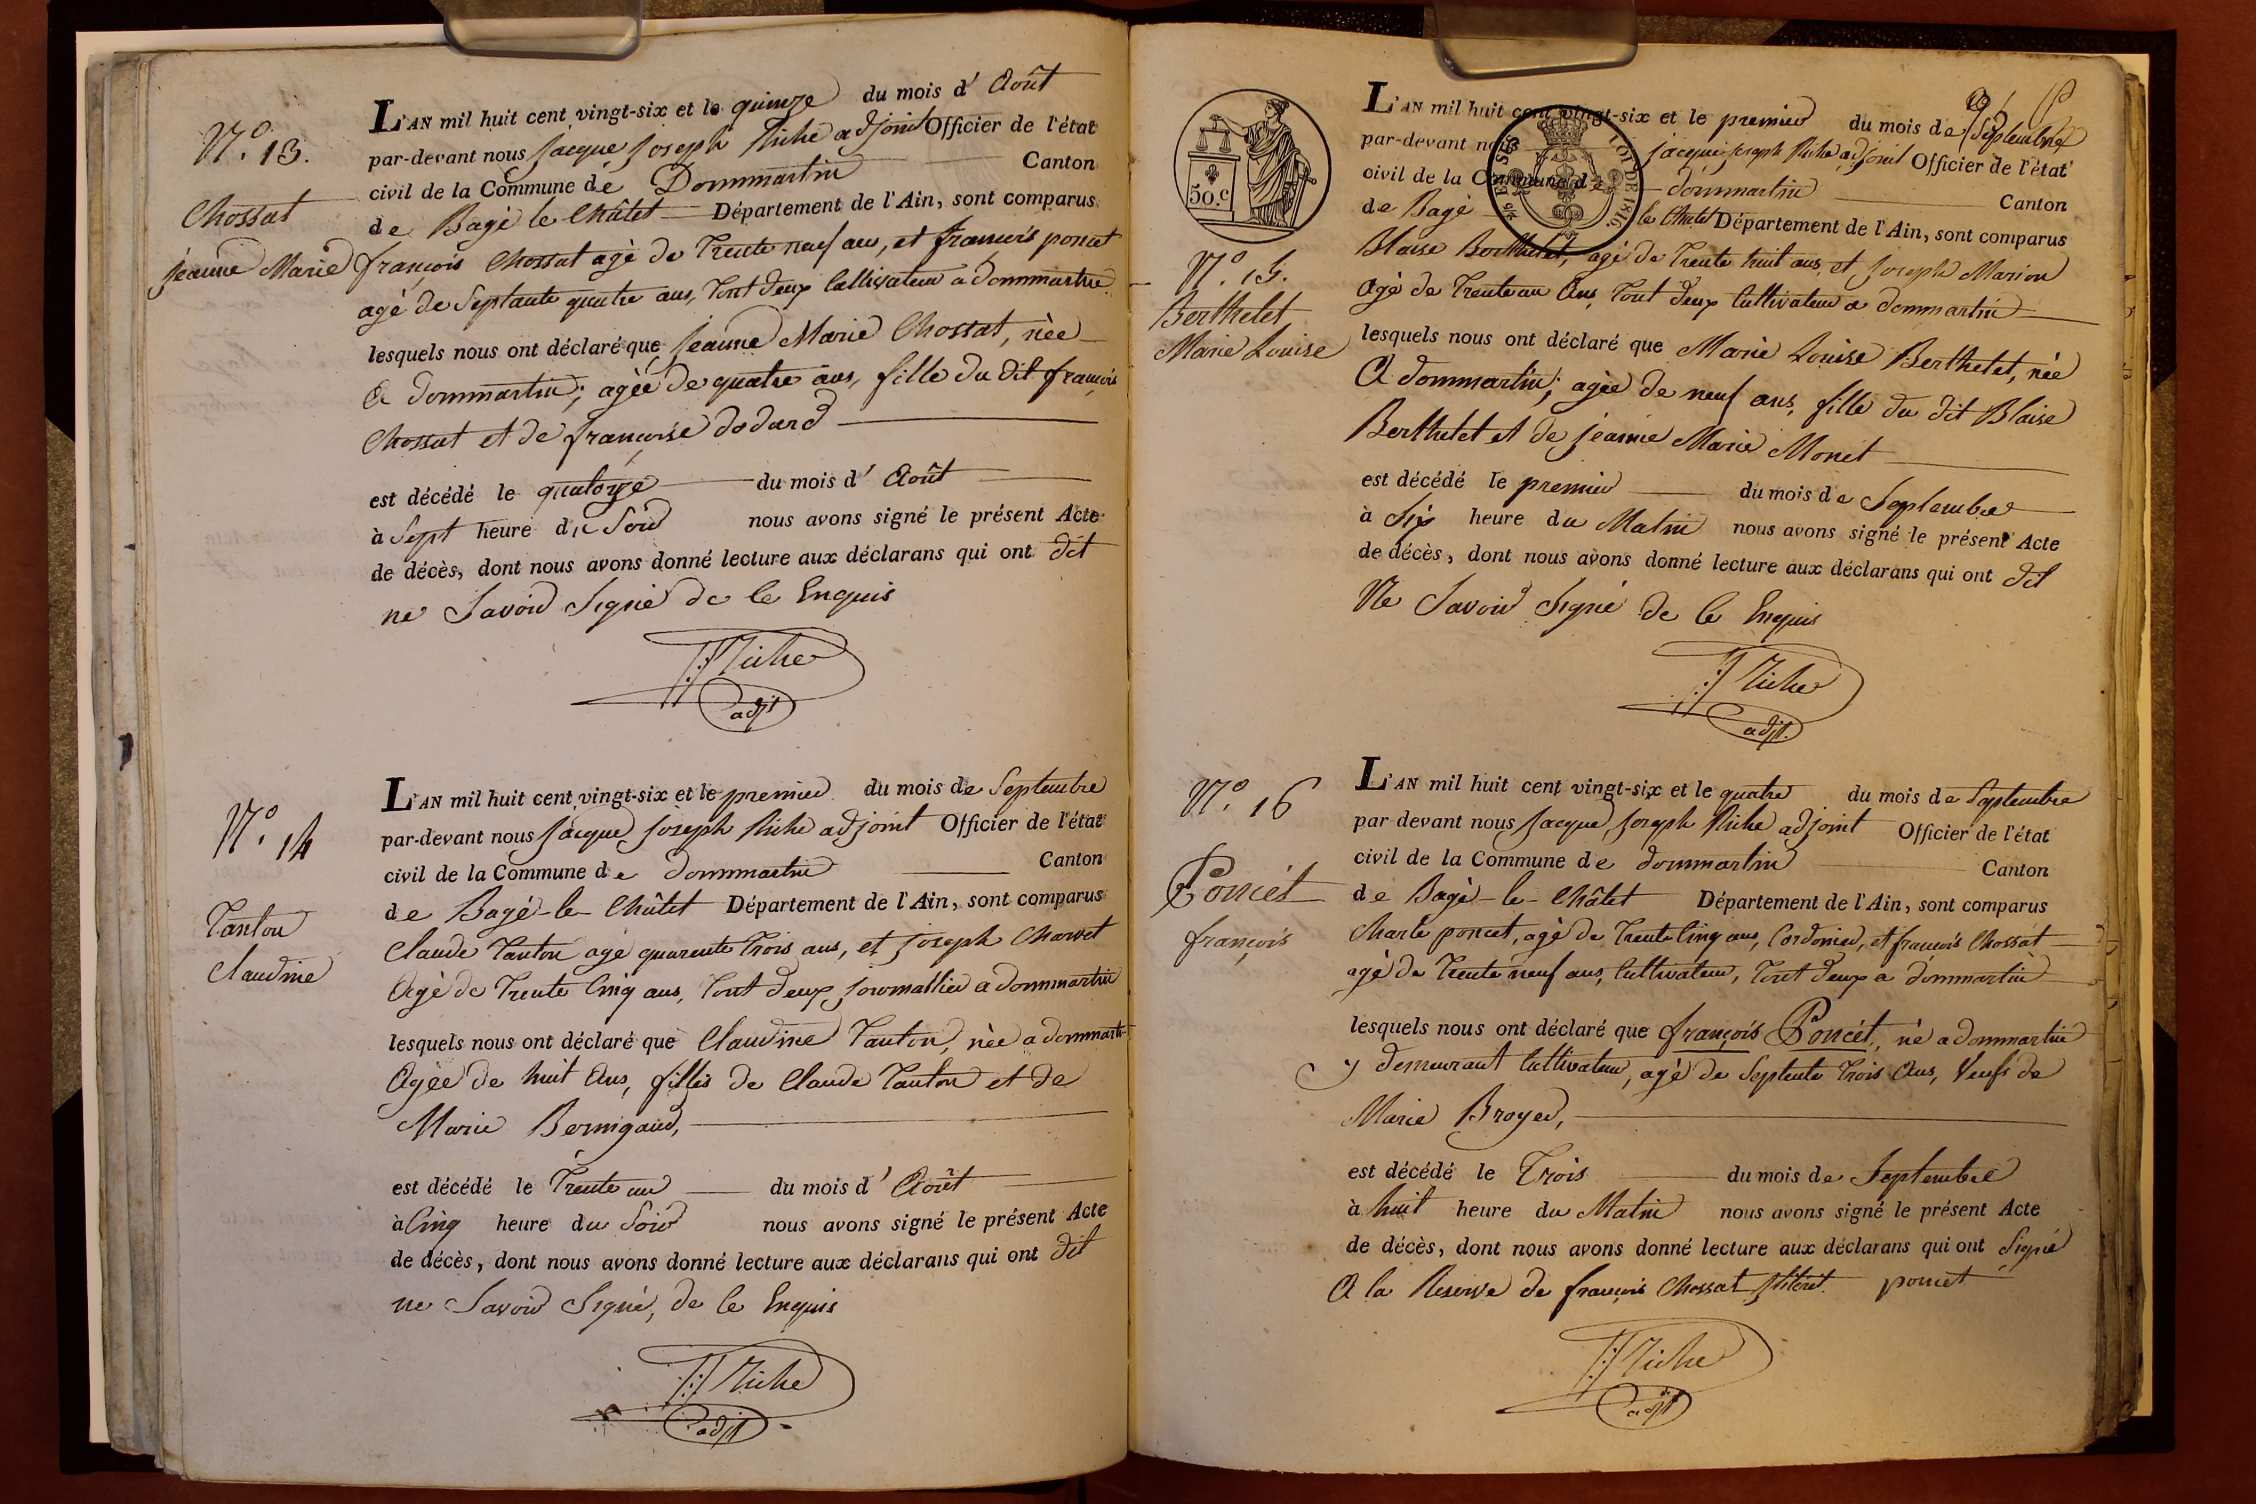 N.° 13.
Chossat
jeanne Marie
L'AN mil huit cent vingt-six et le quinze du mois d' Août
par-devant nous jacque joseph Riche adjoint Officier de l'état
civil de la Commune de Dommartin Canton
de Bagé le Châtel Département de l'Ain, sont comparus
françois Chossat agé de Trente neuf ans, et francois poncet
agé de Septante quatre ans, Tout deux Cultivateur a dommartin
lesquels nous ont déclaré que jeanne Marie Chossat, née
a dommartin; agée de quatre ans, fille du dit françois
Chossat et de françoise dodard
est décédé le quatorze du mois d' Août
à Sept heure du Soir nous avons signé le présent Acte
de décès, dont nous avons donné lecture aux déclarans qui ont dit
ne Savoir Signé de ce Enquis
JJRiche
adjt
N.° 14
Tanton
Claudine
L'AN mil huit cent vingt-six et le premier du mois de Septembre
par-devant nous jacque joseph Riche adjoint Officier de l'état
civil de la Commune de dommartin Canton
de Bagé-le-Châtel Département de l'Ain, sont comparus
Claude Tanton agé quarente trois ans, et joseph Charvet
Agé de Trente Cinq ans, Tout deux journallier a dommartin
lesquels nous ont déclaré que Claudine Tanton, née a dommarti
Agée de huit Ans, filles de Claude Tanton et de
Marie Bernigaud,
est décédé le Trente un du mois d' Août
à Cinq heure du Soir nous avons signé le présent Acte
de décès, dont nous avons donné lecture aux déclarans qui ont dit
ne Savoir Signé, de ce Enquis
JJRiche
adjt
50.c
LOI DE 1816
N.° 15.
Berthelet
Marie Louise
L'AN mil huit cent vingt-six et le premier du mois de Septembre
par-devant nous jacque joseph Riche adjoint Officier de l'état
civil de la Commune de dommartin Canton
de Bagé le Châtel Département de l'Ain, sont comparus
Blaise Berthelet, agé de Trente huit ans, et joseph Marion
Agé de Trente un Ans, Tout deux Cultivateur a dommartin
lesquels nous ont déclaré que Marie Louise Berthelet, née
A dommartin; agée de neuf ans, fille du dit Blaise
Berthelet et de jeanne Marie Monet
est décédé le premier du mois de Septembre
à Six heure du Matin nous avons signé le présent Acte
de décès, dont nous avons donné lecture aux déclarans qui ont dit
Ne Savoir Signé de ce Enquis
JJRiche
adjt.
N.° 16
Poncét
françois
L'AN mil huit cent vingt-six et le quatre du mois de Septembre
par devant nous jacque joseph Riche adjoint Officier de l'état
civil de la Commune de dommartin Canton
de Bagé-le-Châtel Département de l'Ain, sont comparus
Charle poncet, agé de Trente Cinq ans, Cordonier, et françois Chossat
agé de Trente neuf ans, Cultivateur, Tout deux a dommartin
lesquels nous ont déclaré que françois Poncét, né a dommartin
y demeurant Cultivateur, agé de Septente Trois Ans, Veuf de
Marie Broyer,
est décédé le Trois du mois de Septembre
à huit heure du Matin nous avons signé le présent Acte
de décès, dont nous avons donné lecture aux déclarans qui ont Signé
A la Réserve de françois Chossat jlitéret. poncet
JJRiche
adjt